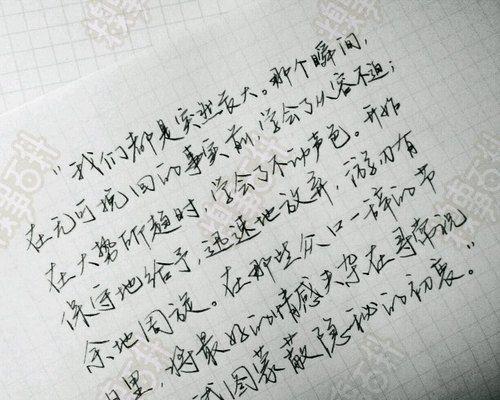 “我们都是突然长大。那个瞬间，
在无可挽回的事实前，学会了从容不迫；
在大势所趋时，学会了不动声色。开始
保守地给予，迅速地放弃，游刃有
余地周旋。在那些众口一辞的节
日里，将最好的情感夹杂在寻常祝
试图蒙蔽隐秘的初衷。”